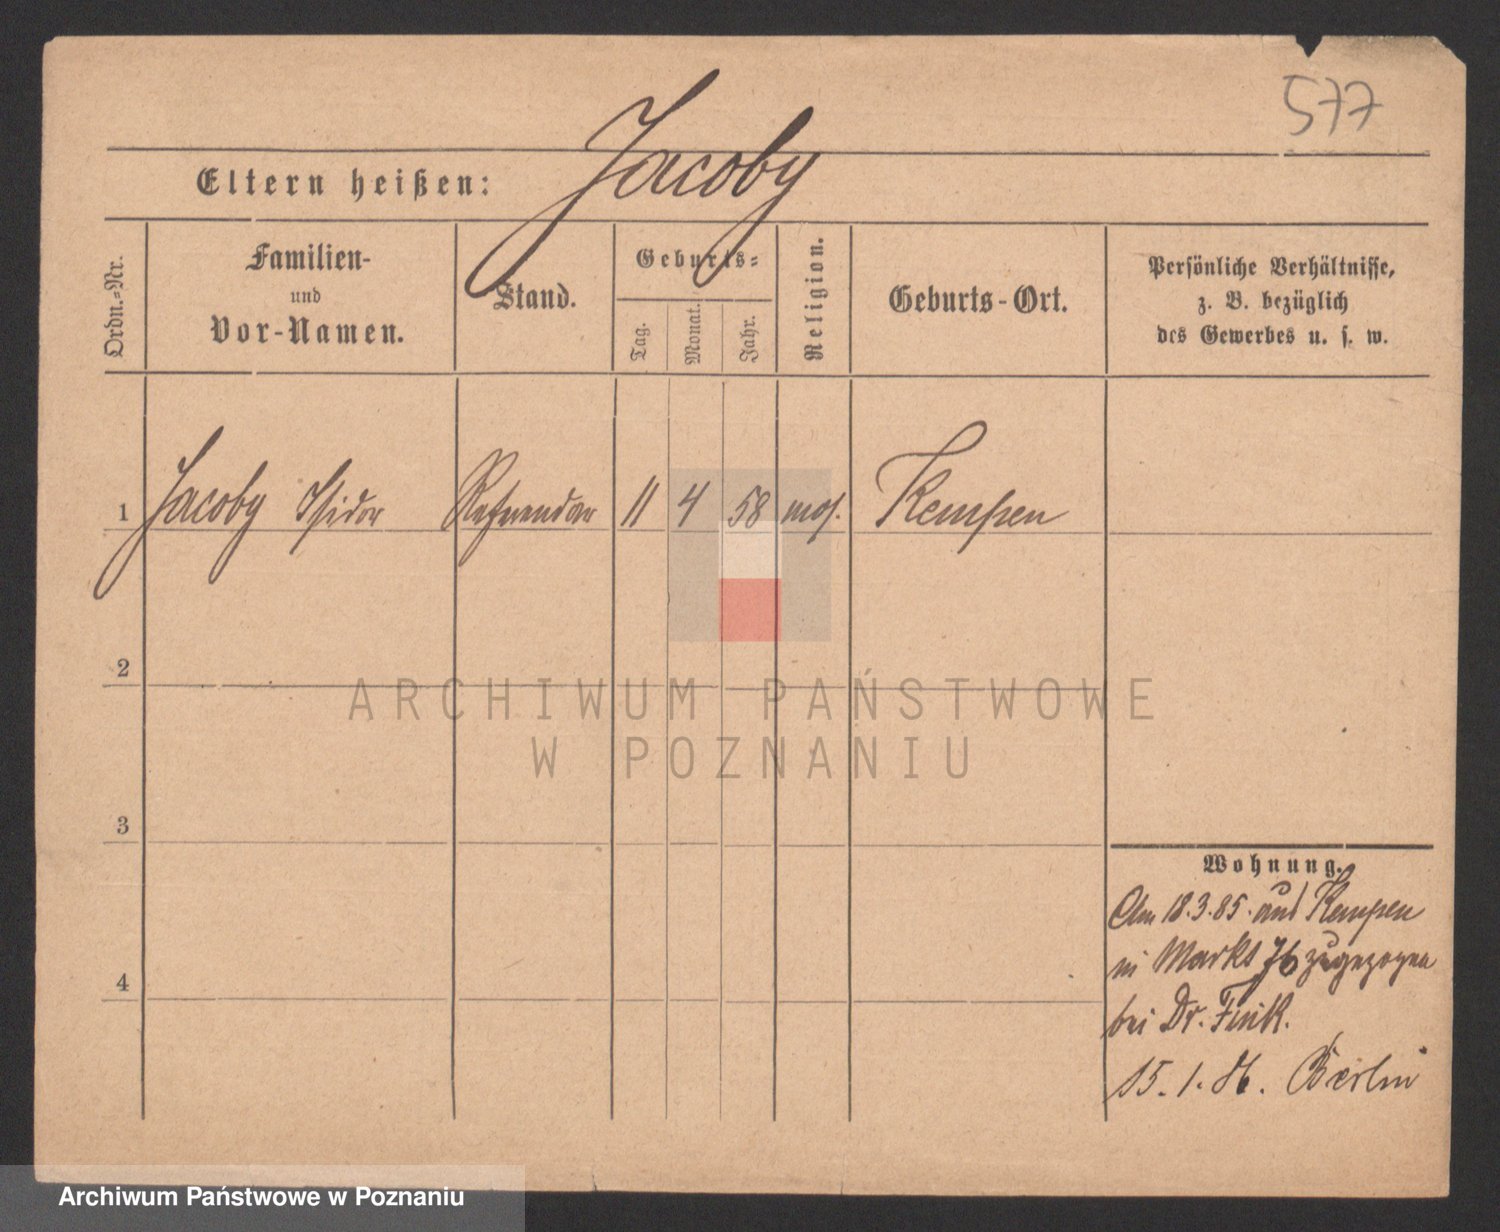 577
Jacoby
Eltern heißen:
Ordn.=Nr.
Familien-
und
Vor-Namen.
Stand.
Geburts=
Tag.
Monat.
Jahr.
Religion.
Geburts-Ort.
Persönliche Verhältnisse,
z. B. bezüglich
des Gewerbes u. s. w.
1 Jacoby Isidor Referendar 11 4 58 mos. Kempen
2
3
4
Wohnung.
Am 18.3.85. aus Kempen
in Markt 76 zugezogen
bei Dr. Fink.
15. 1. 86. Berlin
ARCHIWUM PAŃSTWOWE
W POZNANIU
Archiwum Państwowe w Poznaniu